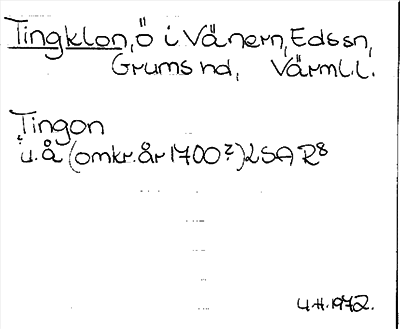 Tingklon, ö i Vänern, Edssn,
Grums hd, Värml.l.
Tingon
u.å (omkr. år 1700?) LSA R8
U.H. 1972.